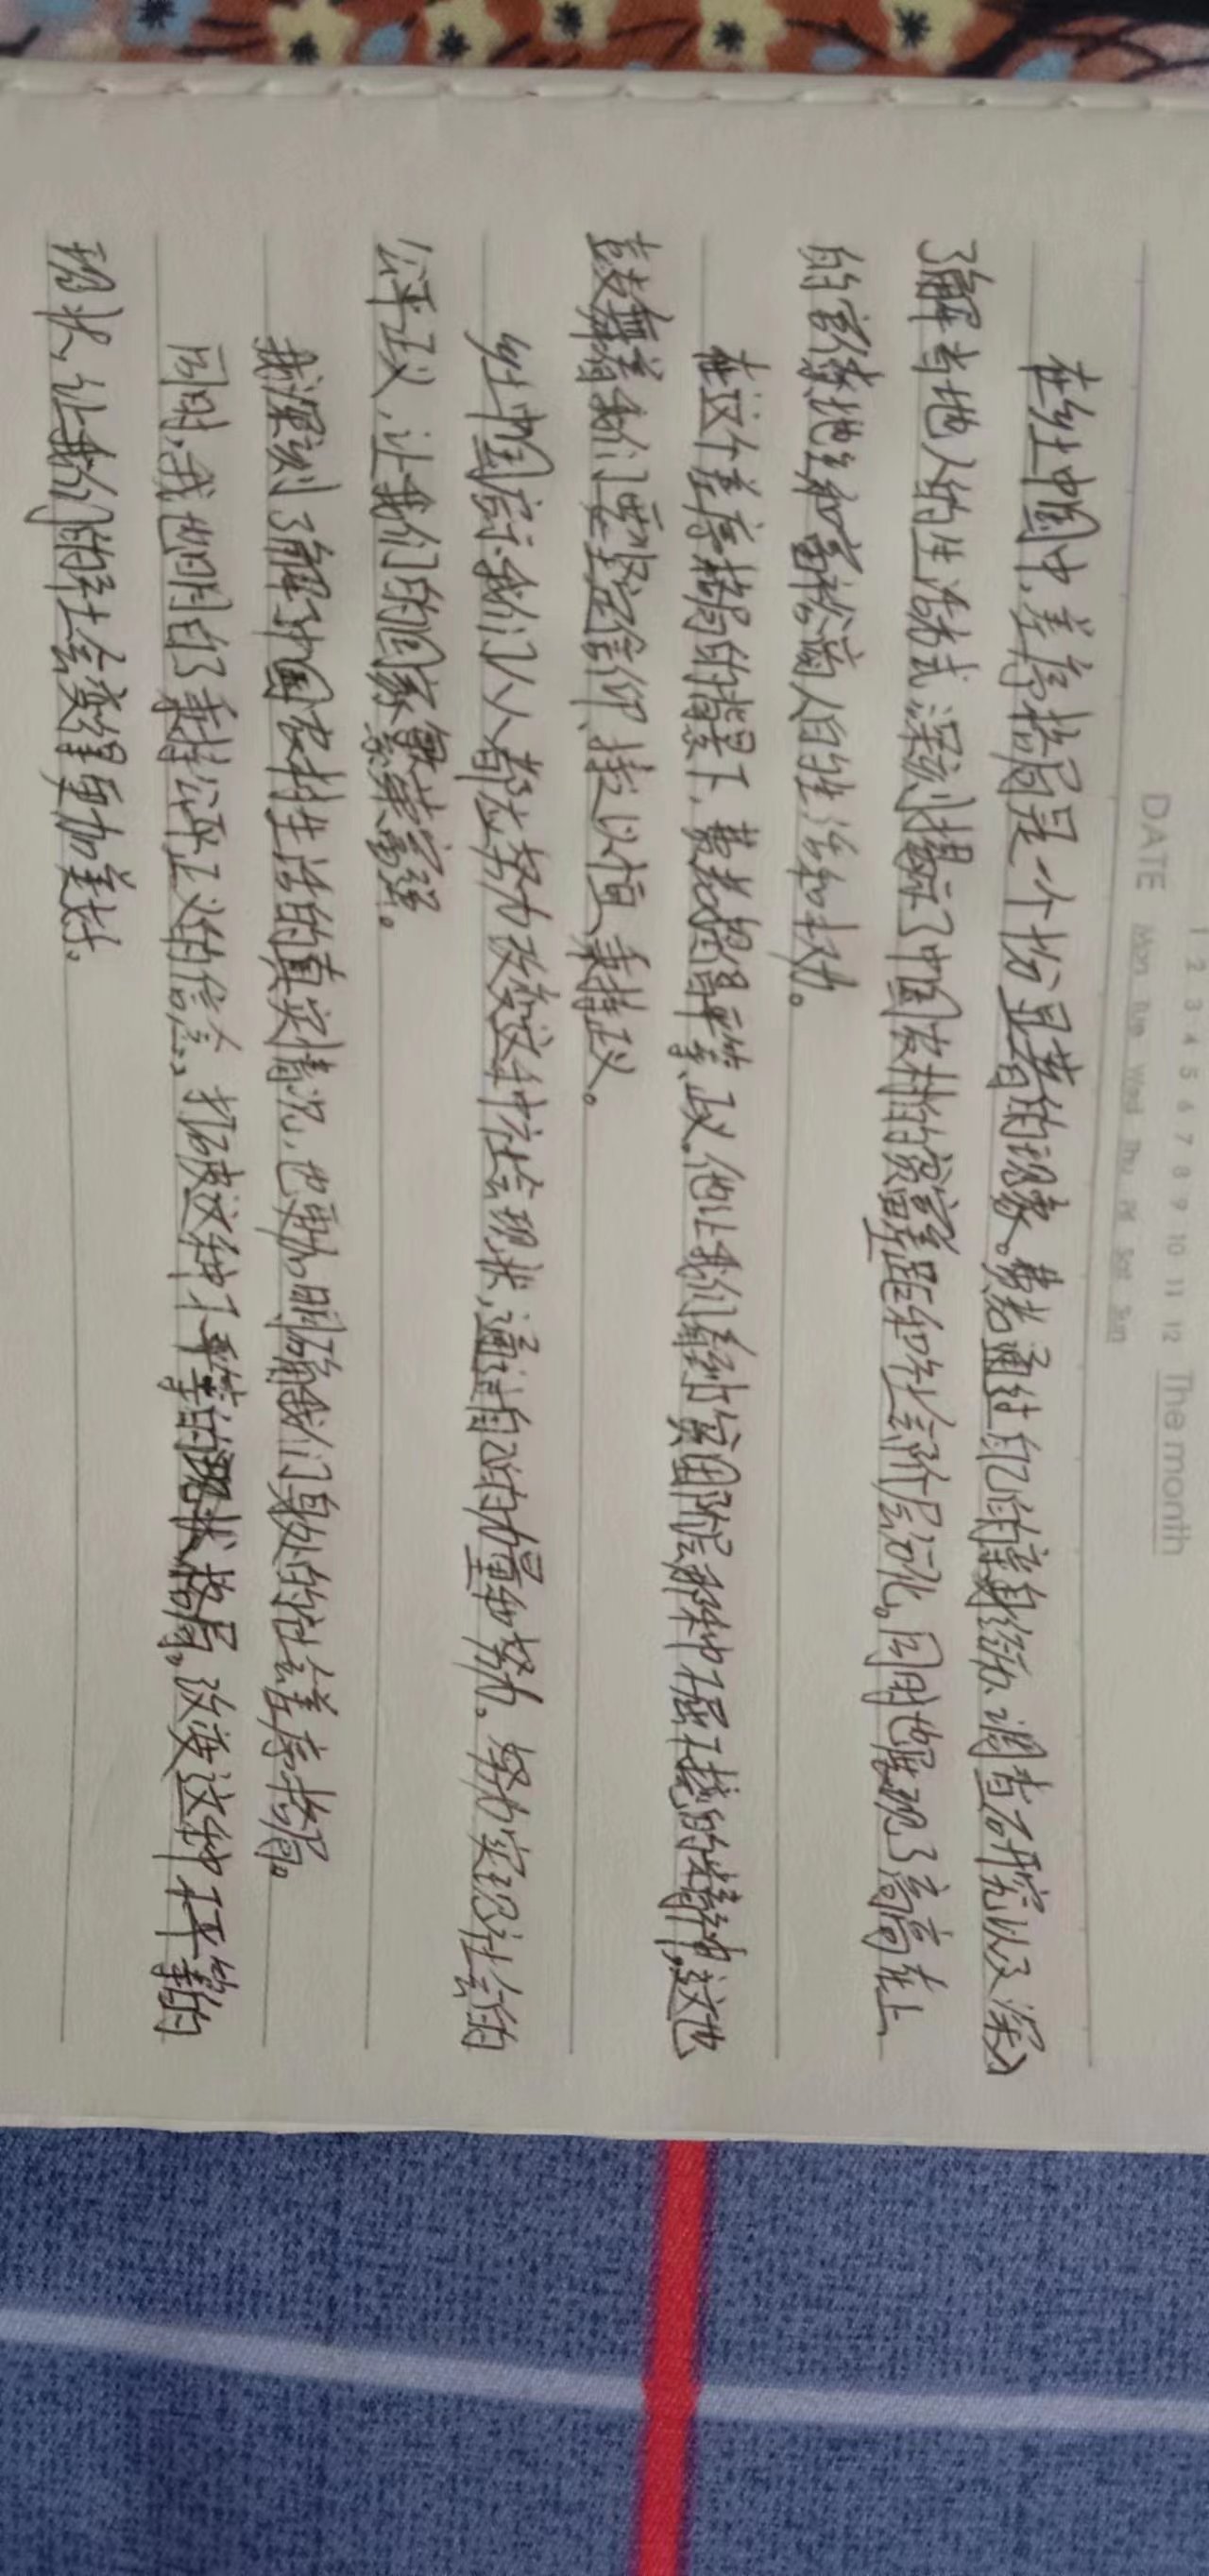 1 2 3 4 5 6 7 8 9 10 11 12 The month
DATE Mon Tue Wed Thu Fri Sat Sun
在乡土中国中,差序格局是一个十分显著的现象。费老通过自己的亲身经历、调查研究以及深入
了解当地人的生活方式,深刻揭示了中国农村的贫富差距和社会阶层分化。同时也展现了高高在上
的官僚地主和富裕商人的生活和权力。
在这个差序格局的背景下,费老倡导平等、正义。他让我们看到贫困阶层那种不屈不挠的精神,这也
鼓舞着我们要坚定信仰、持之以恒、秉持正义。
乡土中国启示我们人人都应努力改变这种社会现状,通过自己的力量和努力。努力实现社会的
公平正义,让我们的国家繁荣富强。
我深刻了解到中国农村生活的真实情况,也更加明确我们身处的社会差序格局。
同时,我也明白了秉持公平正义的信念,打破这种不平等的格局,改变这种不平等的
现状,让我们的社会变得更加美好。